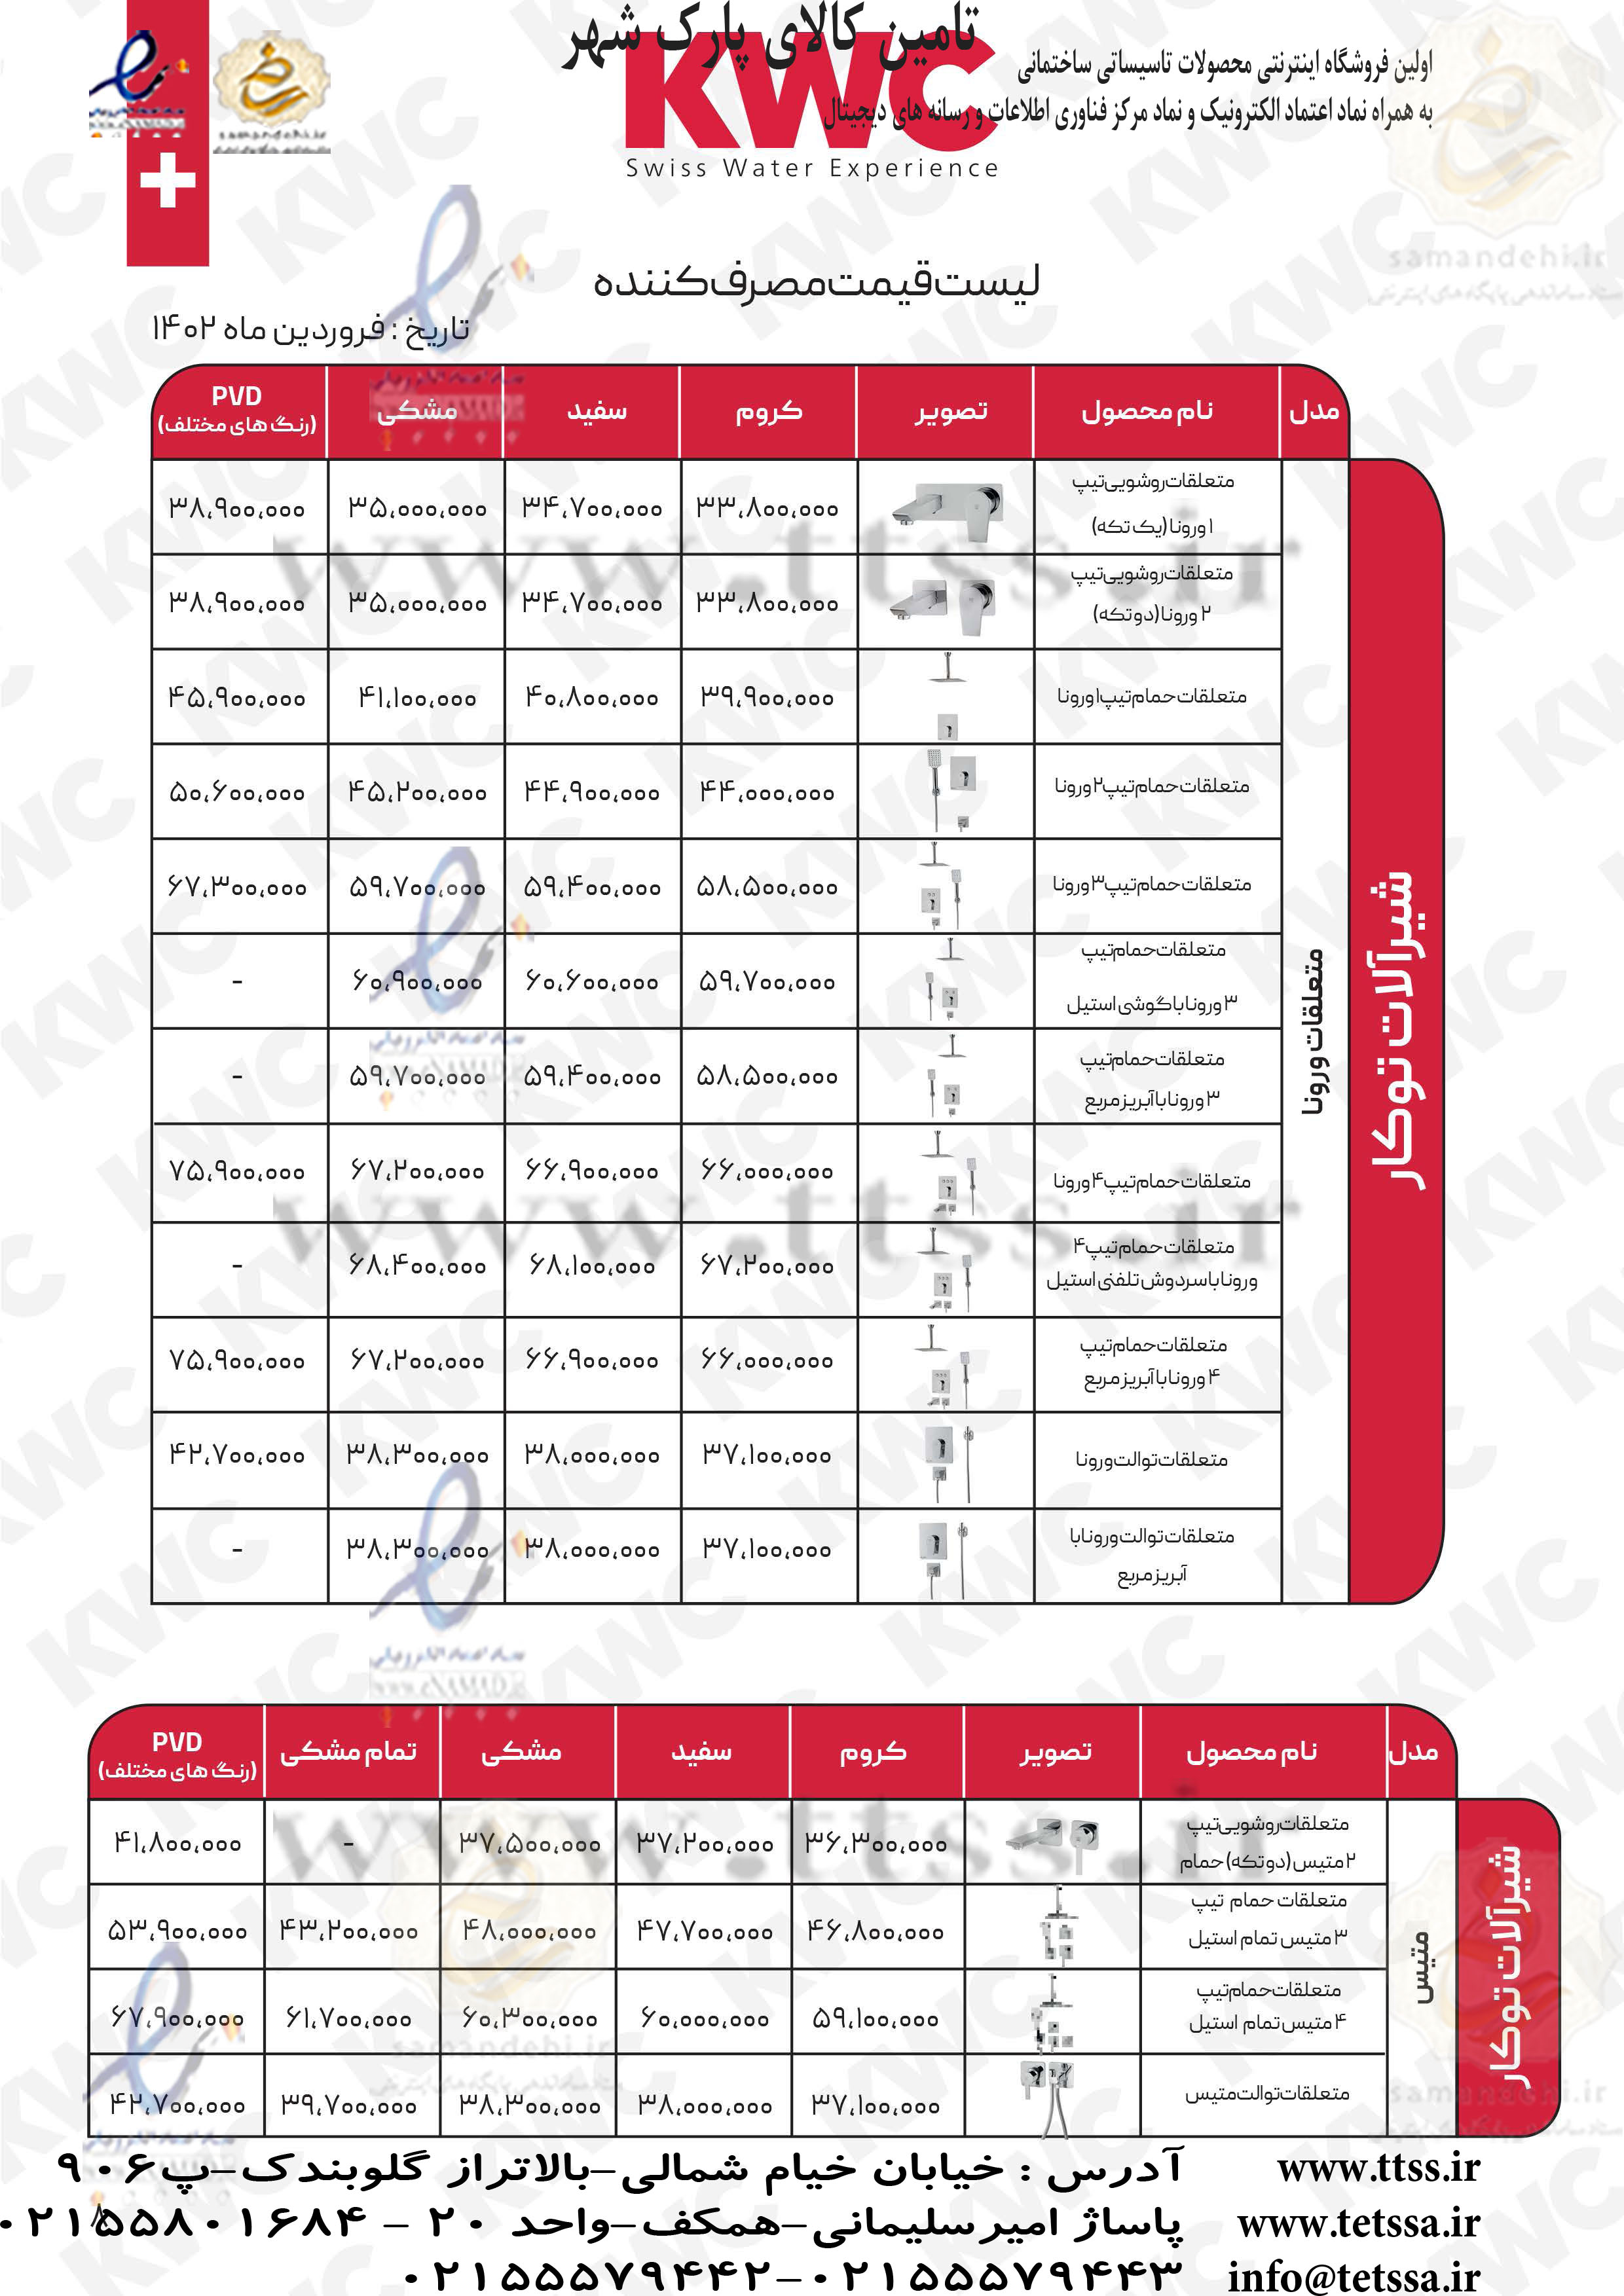 تامین کالای پارک شهر
اولین فروشگاه اینترنتی محصولات تاسیساتی ساختمانی
به همراه نماد اعتماد الکترونیک و نماد مرکز فناوری اطلاعات و رسانه های دیجیتال
KWC
Swiss Water Experience
samandehi.ir
لیست قیمت مصرف کننده
تاریخ : فروردین ماه ۱۴۰۲
مدل نام محصول تصویر کروم سفید مشکی PVD (رنگ های مختلف)
شیرآلات توکار
متعلقات ورونا
متعلقات روشویی تیپ
۱ ورونا (یک تکه) ۳۳،۸۰۰،۰۰۰ ۳۴،۷۰۰،۰۰۰ ۳۵،۰۰۰،۰۰۰ ۳۸،۹۰۰،۰۰۰
متعلقات روشویی تیپ
۲ ورونا (دو تکه) ۳۳،۸۰۰،۰۰۰ ۳۴،۷۰۰،۰۰۰ ۳۵،۰۰۰،۰۰۰ ۳۸،۹۰۰،۰۰۰
متعلقات حمام تیپ ۱ ورونا ۳۹،۹۰۰،۰۰۰ ۴۰،۸۰۰،۰۰۰ ۴۱،۱۰۰،۰۰۰ ۴۵،۹۰۰،۰۰۰
متعلقات حمام تیپ ۲ ورونا ۴۴،۰۰۰،۰۰۰ ۴۴،۹۰۰،۰۰۰ ۴۵،۲۰۰،۰۰۰ ۵۰،۶۰۰،۰۰۰
متعلقات حمام تیپ ۳ ورونا ۵۸،۵۰۰،۰۰۰ ۵۹،۴۰۰،۰۰۰ ۵۹،۷۰۰،۰۰۰ ۶۷،۳۰۰،۰۰۰
متعلقات حمام تیپ
۳ ورونا با گوشی استیل ۵۹،۷۰۰،۰۰۰ ۶۰،۶۰۰،۰۰۰ ۶۰،۹۰۰،۰۰۰ -
متعلقات حمام تیپ
۳ ورونا با آبریز مربع ۵۸،۵۰۰،۰۰۰ ۵۹،۴۰۰،۰۰۰ ۵۹،۷۰۰،۰۰۰ -
متعلقات حمام تیپ ۴ ورونا ۶۶،۰۰۰،۰۰۰ ۶۶،۹۰۰،۰۰۰ ۶۷،۲۰۰،۰۰۰ ۷۵،۹۰۰،۰۰۰
متعلقات حمام تیپ ۴
ورونا با سردوش تلفنی استیل ۶۷،۲۰۰،۰۰۰ ۶۸،۱۰۰،۰۰۰ ۶۸،۴۰۰،۰۰۰ -
متعلقات حمام تیپ
۴ ورونا با آبریز مربع ۶۶،۰۰۰،۰۰۰ ۶۶،۹۰۰،۰۰۰ ۶۷،۲۰۰،۰۰۰ ۷۵،۹۰۰،۰۰۰
متعلقات توالت ورونا ۳۷،۱۰۰،۰۰۰ ۳۸،۰۰۰،۰۰۰ ۳۸،۳۰۰،۰۰۰ ۴۲،۷۰۰،۰۰۰
متعلقات توالت ورونا با
آبریز مربع ۳۷،۱۰۰،۰۰۰ ۳۸،۰۰۰،۰۰۰ ۳۸،۳۰۰،۰۰۰ -
مدل نام محصول تصویر کروم سفید مشکی تمام مشکی PVD (رنگ های مختلف)
شیرآلات توکار
متیس
متعلقات روشویی تیپ
۲ متیس (دو تکه) حمام ۳۶،۳۰۰،۰۰۰ ۳۷،۲۰۰،۰۰۰ ۳۷،۵۰۰،۰۰۰ - ۴۱،۸۰۰،۰۰۰
متعلقات حمام تیپ
۳ متیس تمام استیل ۴۶،۸۰۰،۰۰۰ ۴۷،۷۰۰،۰۰۰ ۴۸،۰۰۰،۰۰۰ ۴۳،۲۰۰،۰۰۰ ۵۳،۹۰۰،۰۰۰
متعلقات حمام تیپ
۴ متیس تمام استیل ۵۹،۱۰۰،۰۰۰ ۶۰،۰۰۰،۰۰۰ ۶۰،۳۰۰،۰۰۰ ۶۱،۷۰۰،۰۰۰ ۶۷،۹۰۰،۰۰۰
متعلقات توالت متیس ۳۷،۱۰۰،۰۰۰ ۳۸،۰۰۰،۰۰۰ ۳۸،۳۰۰،۰۰۰ ۳۹،۷۰۰،۰۰۰ ۴۲،۷۰۰،۰۰۰
www.ttss.ir
آدرس : خیابان خیام شمالی-بالاتراز گلوبندک-پ۹۰۶
www.tetssa.ir
پاساژ امیرسلیمانی-همکف-واحد ۲۰ - ۰۲۱۵۵۸۰۱۶۸۴
info@tetssa.ir
۰۲۱۵۵۵۷۹۴۴۲-۰۲۱۵۵۵۷۹۴۴۳